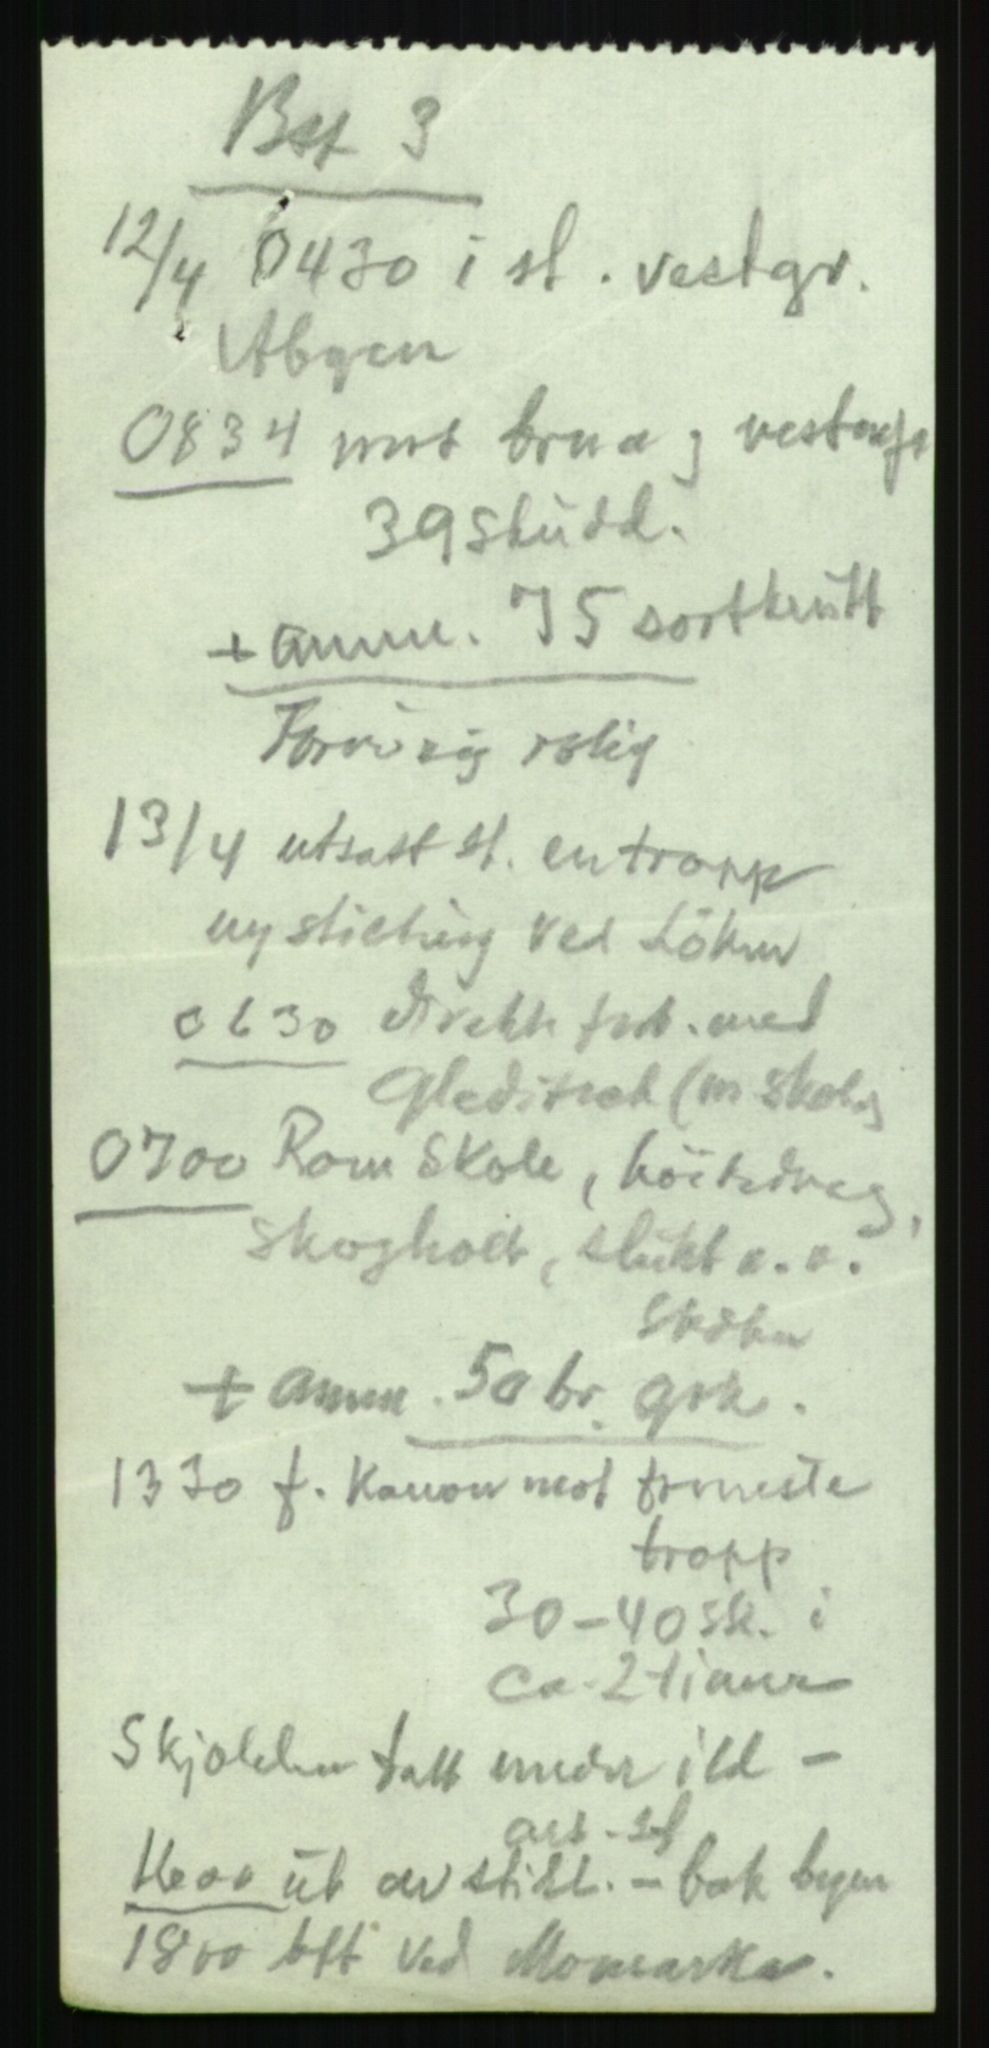 Bat 3
12/4 0430 i st. vestgr.
Abgen
0834 mot brua j
39 skudd.
+ amm. 75 sortkrutt
Forøvrig rolig
13/4 utsatt st. en tropp
ny stilling ved Löken
0630 direkte forb. med
Gleditsch (m skole
0700 Rom Skole, höidedrag,
Skogholt, slukt o. a.
+ amm. 50 br. grk.
1330 f. Kanon mot fremste
tropp
30-40 sk. i
ca. 2 timer
Skjolden tatt under ild -
art. - ild
1600 ut av still. - bak byen
1800 btt ved Momarka.